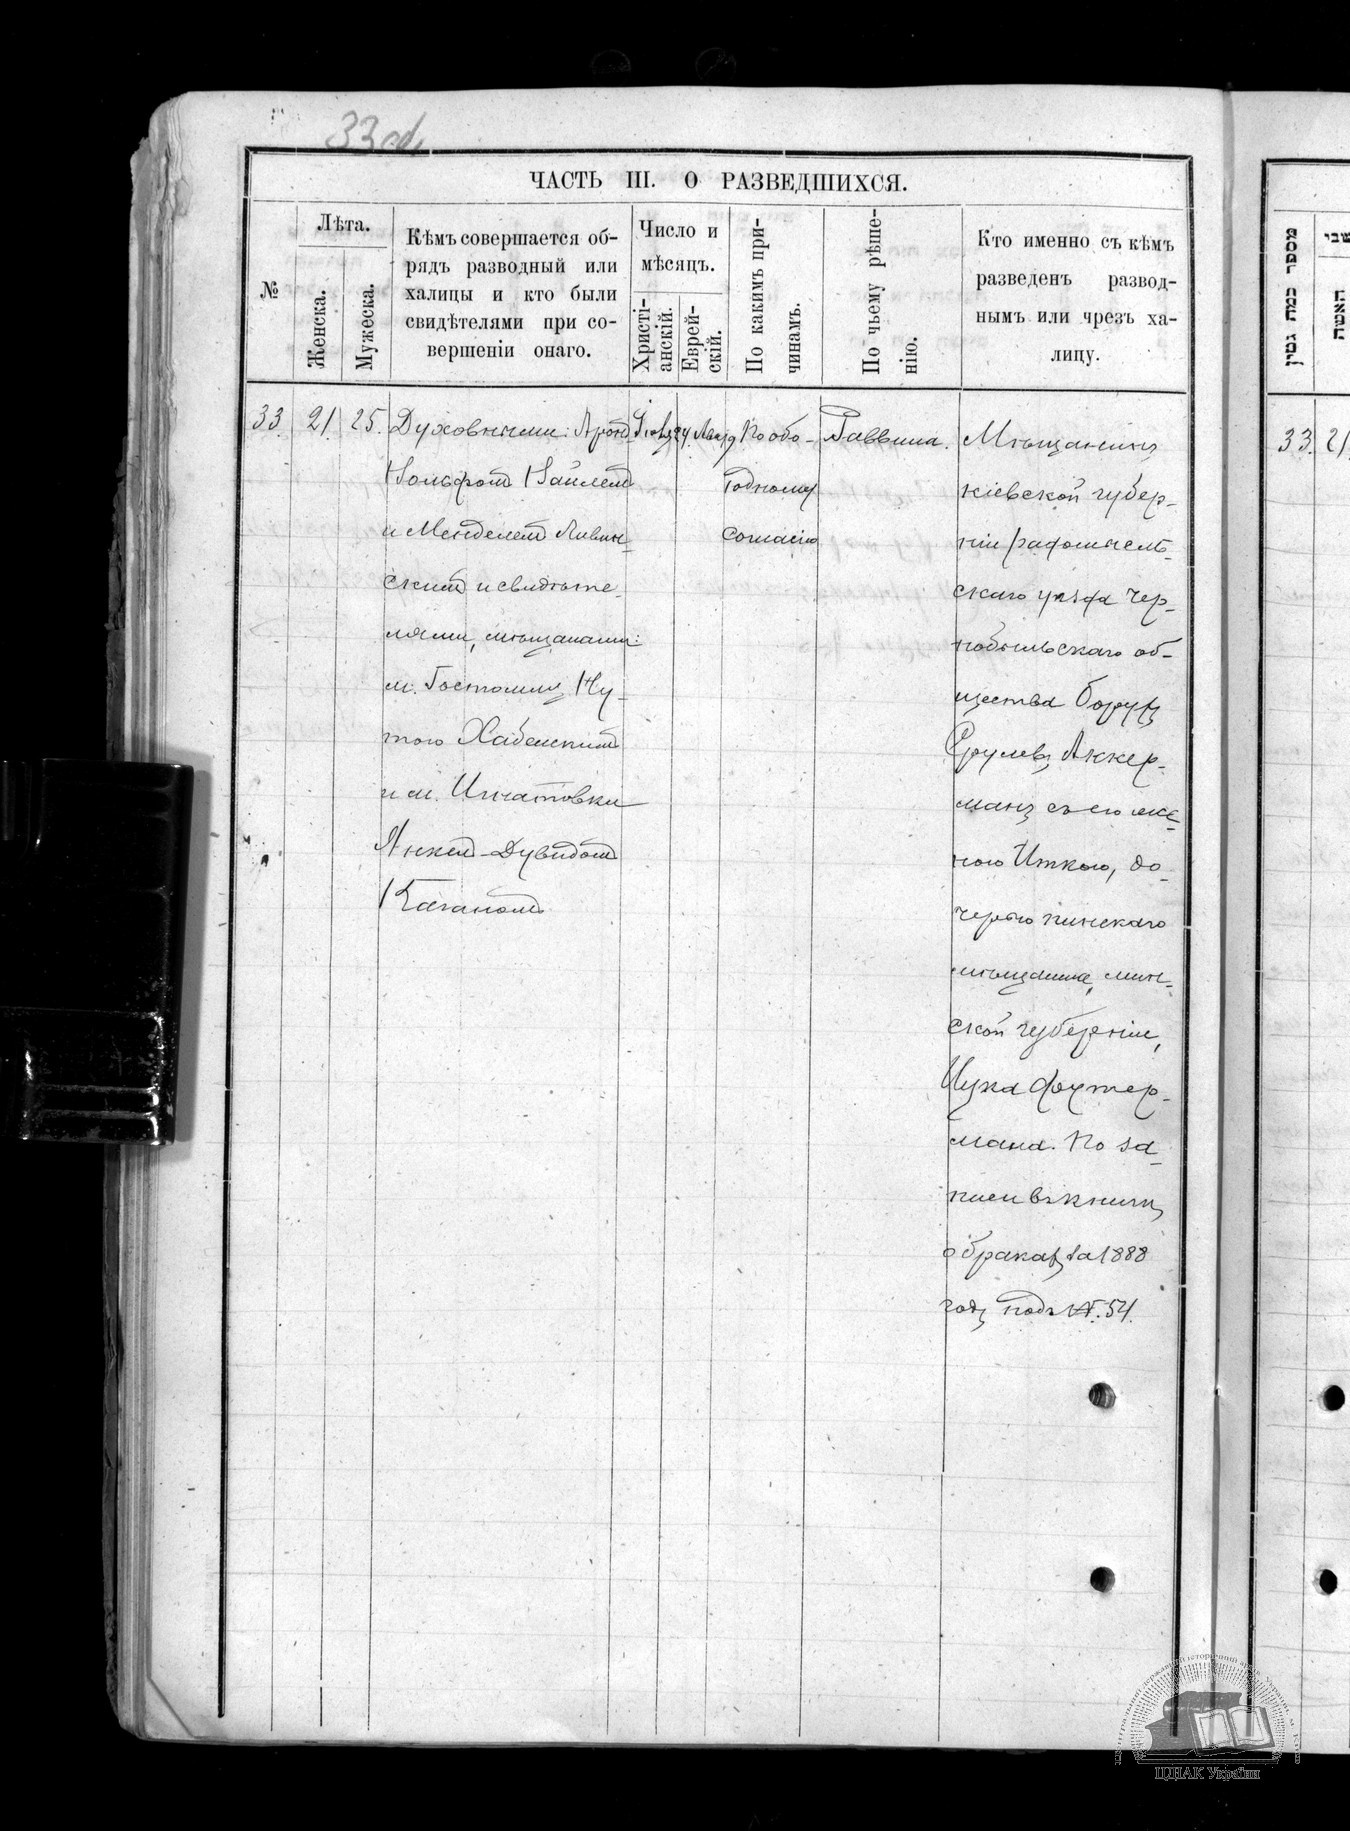 33 об.
ЧАСТЬ III. О РАЗВЕДШИХСЯ.
№
Лѣта.
Женска.
Мужеска.
Кѣмъ совершается об-
рядъ разводный или
халицы и кто были
свидѣтелями при со-
вершеніи онаго.
Число и
мѣсяцъ.
Христі-
анскій.
Еврей-
скій.
По какимъ при-
чинамъ.
По чьему рѣше-
нію.
Кто именно съ кѣмъ
разведенъ развод-
нымъ или чрезъ ха-
лицу.
33. 21. 25.
Духовными: Арон
Вольфом
и Менделем Ливин-
ским и свидѣте-
лями, мѣщанами:
м. Гостомля Ну-
тою Хабенским
и м. Игнатовки
Янкел-Дувидом
Каганом
По обо-
юдному
согласію
Раввина.
Мѣщанинъ
кіевской губер-
ніи радомысль-
скаго уѣзда чер-
нобыльскаго об-
щества Борухъ
Срулевъ Аккер-
манъ съ его же-
ною Иткою, до-
черью пинскаго
мѣщанина, мин-
ской губерніи,
Ицка Футер-
мана. По за-
писи въ книгѣ
о бракахъ за 1888
годъ подъ №. 54.
מספר כמה גטין
שני
האשה
33. 21
ЦДІАК України